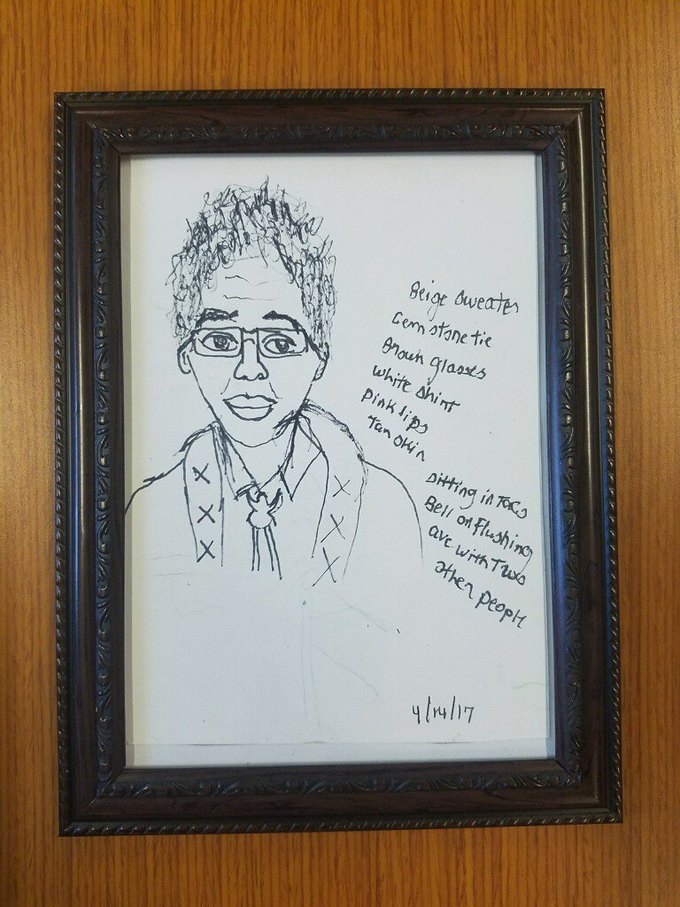 Beige Sweater
Gem stone tie
Brown glasses
white shirt
Pink lips
Tan skin
sitting in Taco
Bell on flushing
ave with Two
other people
4/14/17